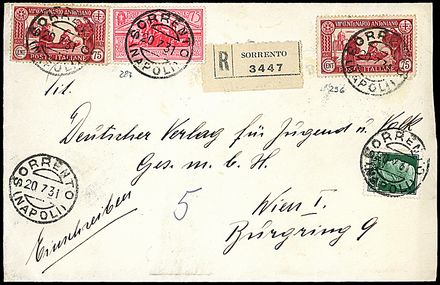 VII CENTENARIO ANTONIANO
CENT 75
POSTE ITALIANE
SORRENTO
(NAPOLI)
20 7 31
R
SORRENTO
3447
VII CENTENARIO ANTONIANO
CENT 75
POSTE ITALIANE
SORRENTO
(NAPOLI)
Tit.
Deutscher Verlag für Jugend u. Volk
Ges. m. b. H.
SORRENTO
20 7 31
(NAPOLI)
5
Wien I.
Einschreiben
Burgring 9